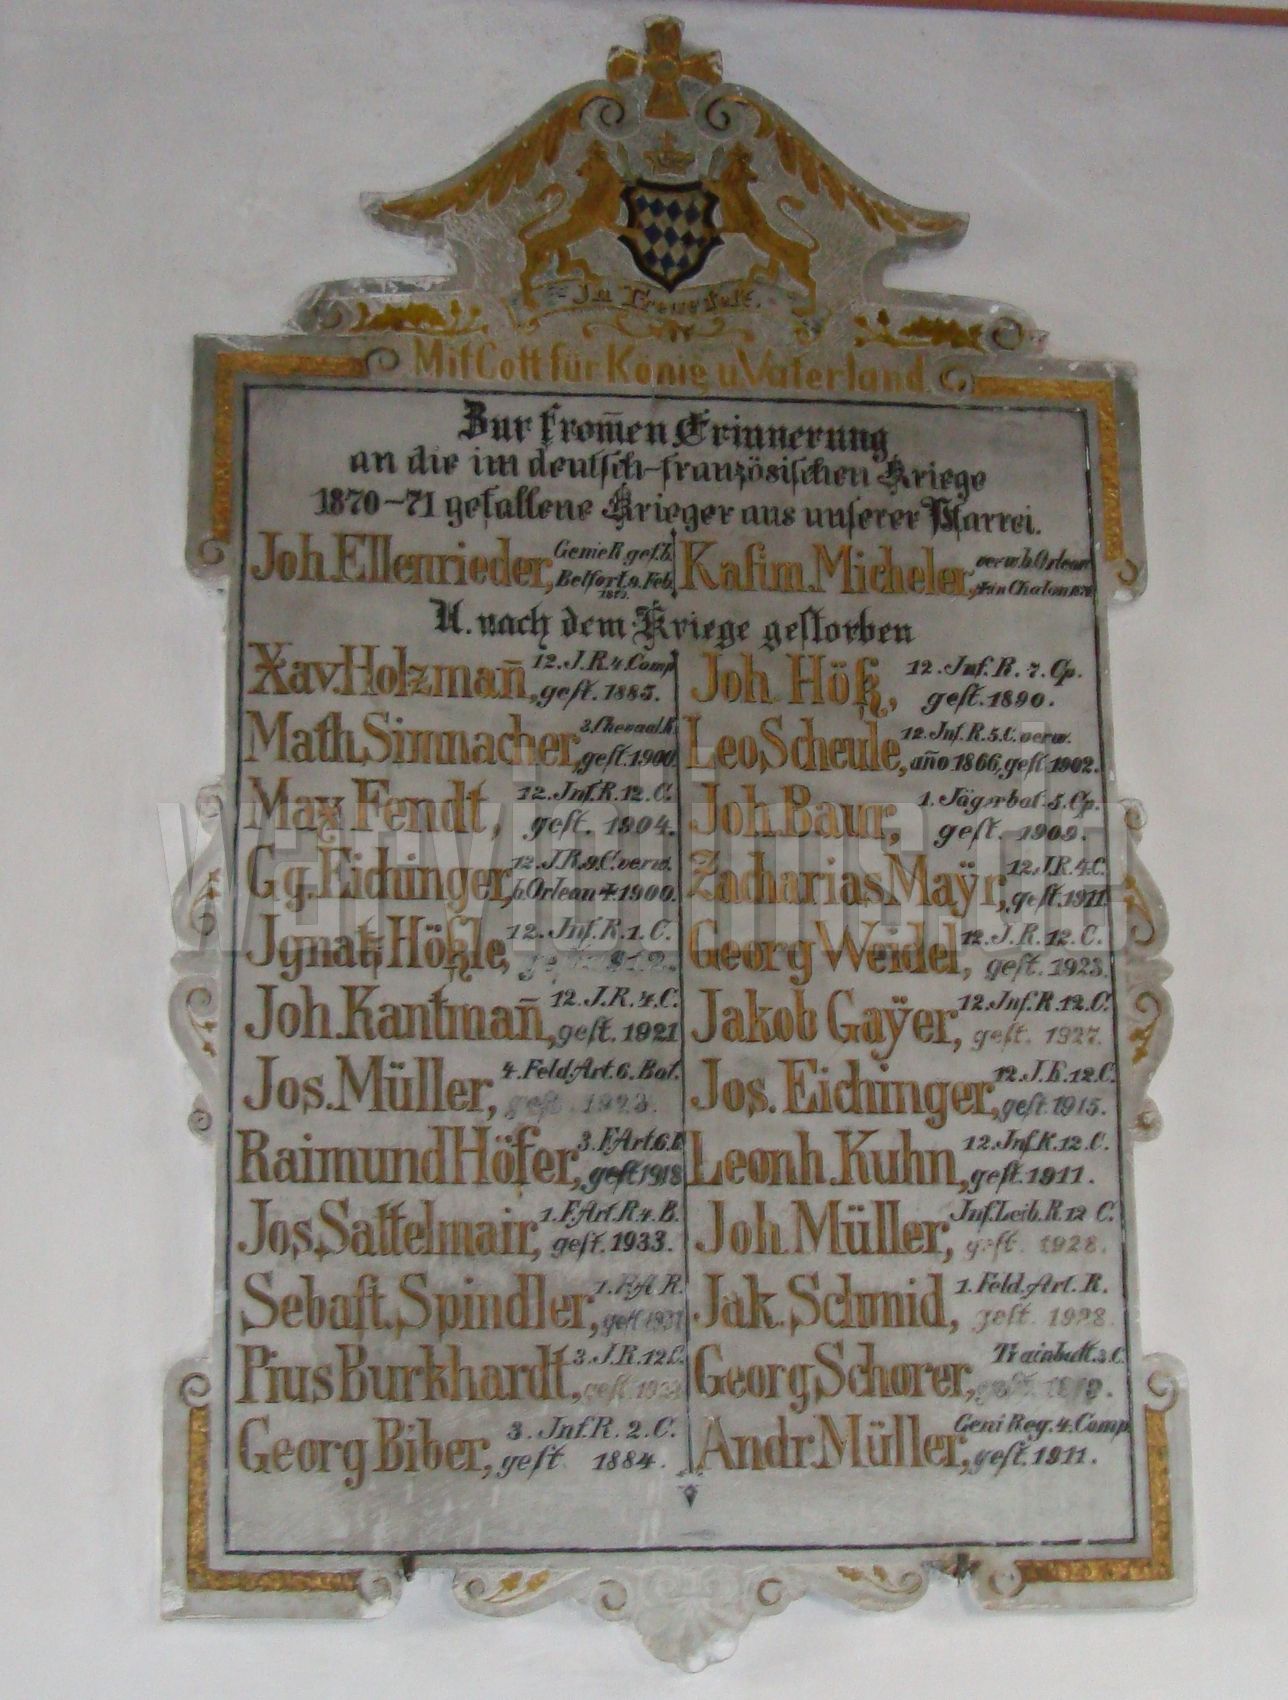 In Treue fest.
Mit Gott für König u Vaterland.
Zur from̅en Erinnerung
an die im deutsch-französischen Kriege
1870-71 gefallene Krieger aus unserer Pfarrei.
Joh. Ellenrieder, Genie R gef. b. Belfort 9. Feb.
Kasim. Micheler, verw. b. Orlean † in Chalon 1870
U. nach dem Kriege gestorben
Xav. Holzman̅, 12. J. R. 4. Comp gest. 1885.
Joh. Höß, 12. Inf. R. 7. Cp. gest. 1890.
Math. Simnacher, 3. Chevaul. R. gest. 1900.
Leo Scheule, 12. Inf. R. 5. C. verw. an̅o 1866, gest. 1902.
Max Fendt, 12. Inf. R. 12. C. gest. 1904.
Joh. Baur, 1. Jägerbat. 5. Cp. gest. 1909.
Gg. Eichinger, 12. J. R. 9. C. verw. b. Orlean † 1900.
Zacharias Maÿr, 12. J. R. 4. C. gest. 1911
Jgnatz Hößle, 12. Inf. R. 1. C. gest. 1912.
Georg Weidel, 12. J. R. 12. C. gest. 1923.
Joh. Kantman̅, 12. J. R. 4. C. gest. 1921
Jakob Gaÿer, 12. Inf. R. 12. C. gest. 1927.
Jos. Müller, 4. Feld. Art. 6. Bat. gest. 1923.
Jos. Eichinger, 12. J. R. 12. C. gest. 1915.
Raimund Höfer, 3. F. Art. 6. B gest 1918
Leonh. Kuhn, 12. Inf. R. 12. C. gest. 1911.
Jos. Sattelmair, 1. F. Art. R. 4. B. gest. 1933.
Joh. Müller, Inf. Leib. R. 12 C. gest. 1928.
Sebast. Spindler, 1. F. A R. gest.
Jak. Schmid, 1. Feld. Art. R. gest. 1928.
Pius Burkhardt, 3. J. R. 12 C. gest.
Georg Schorer, Trainbatt. 3. C. gest.
Georg Biber, 3. Inf. R. 2. C. gest. 1884.
Andr. Müller, Geni Reg. 4. Comp. gest. 1911.
warvictims.ch